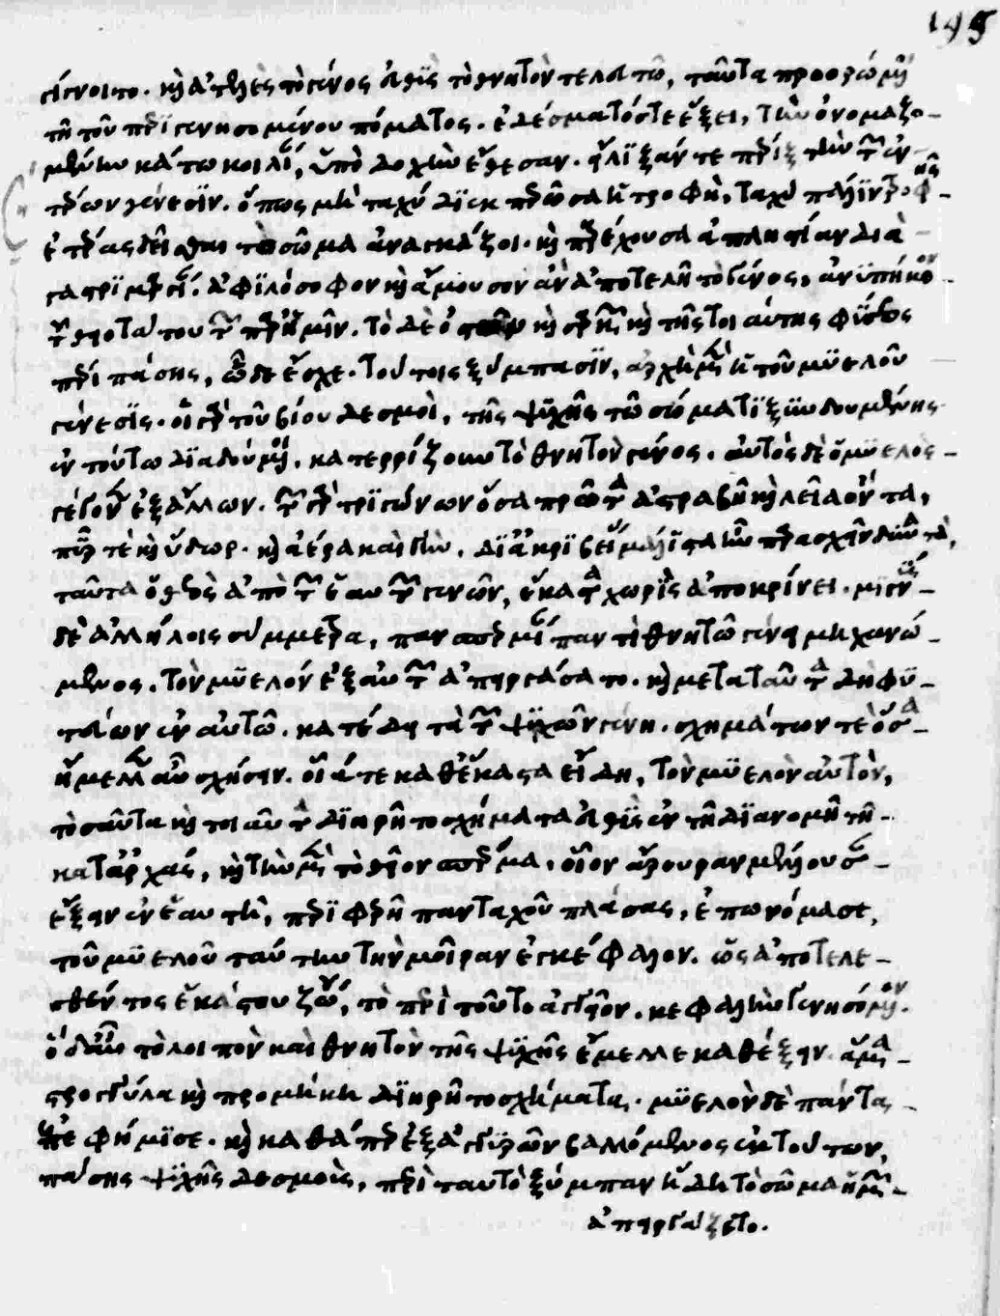 195
γίγνοιτο. καὶ ἀτελὲς τὸ γένος εὐθὺς τὸ θνητὸν τελευτῶ, ταῦτα προορώμενοι
τῆ τοῦ περιγενησομένου πόματος. ἐδέσματός τε ἕξει, τὴν ὀνομαζο-
μένην κάτω κοιλίαν, ὑποδοχὴν ἔθεσαν. εἵλιξάν τε πέριξ τὴν τῶν ἐν-
τέρων γένεσιν. ὅπως μὴ ταχὺ διεκπερῶσα ἡ τροφὴ, ταχὺ πάλιν τροφῆς
ἑτέρας δεῖσθαι τὸ σῶμα ἀναγκάζοι. καὶ παρέχουσα ἀπληστίαν διὰ
γαστριμαργίαν. ἀφιλόσοφον καὶ ἄμουσον ἂν ἀποτελῆ τὸ γένος, ἀνυπήκοον
τοῦ θειοτάτου τῶν παρ' ἡμῖν. τὸ δὲ ὀστῶν καὶ σαρκῶν καὶ τῆς τοιαύτης φύσεως
πέρι πάσης, ὧδε ἔσχε. τούτοις ξύμπασιν, ἀρχὴ μὲν ἡ τοῦ μυελοῦ
γένεσις. οἱ γὰρ τοῦ βίου δεσμοὶ, τῆς ψυχῆς τῶ σώματι ξυνδουμένης
ἐν τούτω διαδούμενοι. κατερρίζουν τὸ θνητὸν γένος. αὐτὸς δὲ ὁ μυελὸς
γέγονεν ἐξ ἄλλων. τῶν γὰρ τριγώνων ὅσα πρῶτα ἀστραβῆ καὶ λεῖα ὄντα,
πῦρ τὲ καὶ ὕδωρ. καὶ ἀέρα καὶ γῆν. δι' ἀκριβείας μάλιστα ἦν παρασχεῖν δυνατὰ,
ταῦτα ὁ θεὸς ἀπὸ τῶν ἑαυτῶν γενῶν, ἕκαστα χωρὶς ἀποκρίνει. μιγνὺς
δὲ ἀλλήλοις σύμμετρα, πανσπερμίαν παντὶ θνητῶ γένει μηχανώ-
μενος. τὸν μυελὸν ἐξ αὐτῶν ἀπηργάσατο. καὶ μετὰ ταῦτα δὴ φυ-
τεύων ἐν αὐτῶ. κατέδει τὰ τῶν ψυχῶν γένη. σχημάτων τὲ ὅσα
ἤμελλεν αὖ σχήσειν. οἷά τε καθ' ἕκαστα εἴδη, τὸν μυελὸν αὐτὸν,
τοσαῦτα καὶ τοιαῦτα διηρεῖτο σχήματα εὐθὺς ἐν τῆ διανομῆ τῆ
κατ' ἀρχάς, καὶ τὴν μὲν τὸ θεῖον σπέρμα. οἷον ἄρουραν μέλλουσαν
ἕξειν ἐν ἑαυτῆ, περιφερῆ πανταχοῦ πλάσας, ἐπωνόμασε,
τοῦ μυελοῦ ταύτην τὴν μοῖραν ἐγκέφαλον. ὡς ἀποτελε-
σθέντος ἑκάστου ζώου, τὸ περὶ τοῦτο ἀγγεῖον. κεφαλὴν γενησόμενον.
ὃ δ' αὖ τὸ λοιπὸν καὶ θνητὸν τῆς ψυχῆς ἔμελλε καθέξειν. ἅμα
στρογγύλα καὶ προμήκη διηρεῖτο σχήματα. μυελὸν δὲ πάντα
ἐπεφήμισε. καὶ καθάπερ ἐξ ἀγκυρῶν βαλλόμενος ἐκ τούτων,
πάσης ψυχῆς δεσμοὺς, περὶ ταυτὸ ξύμπαν ἤδη τὸ σῶμα ἡμῶν
ἀπηργάζετο.